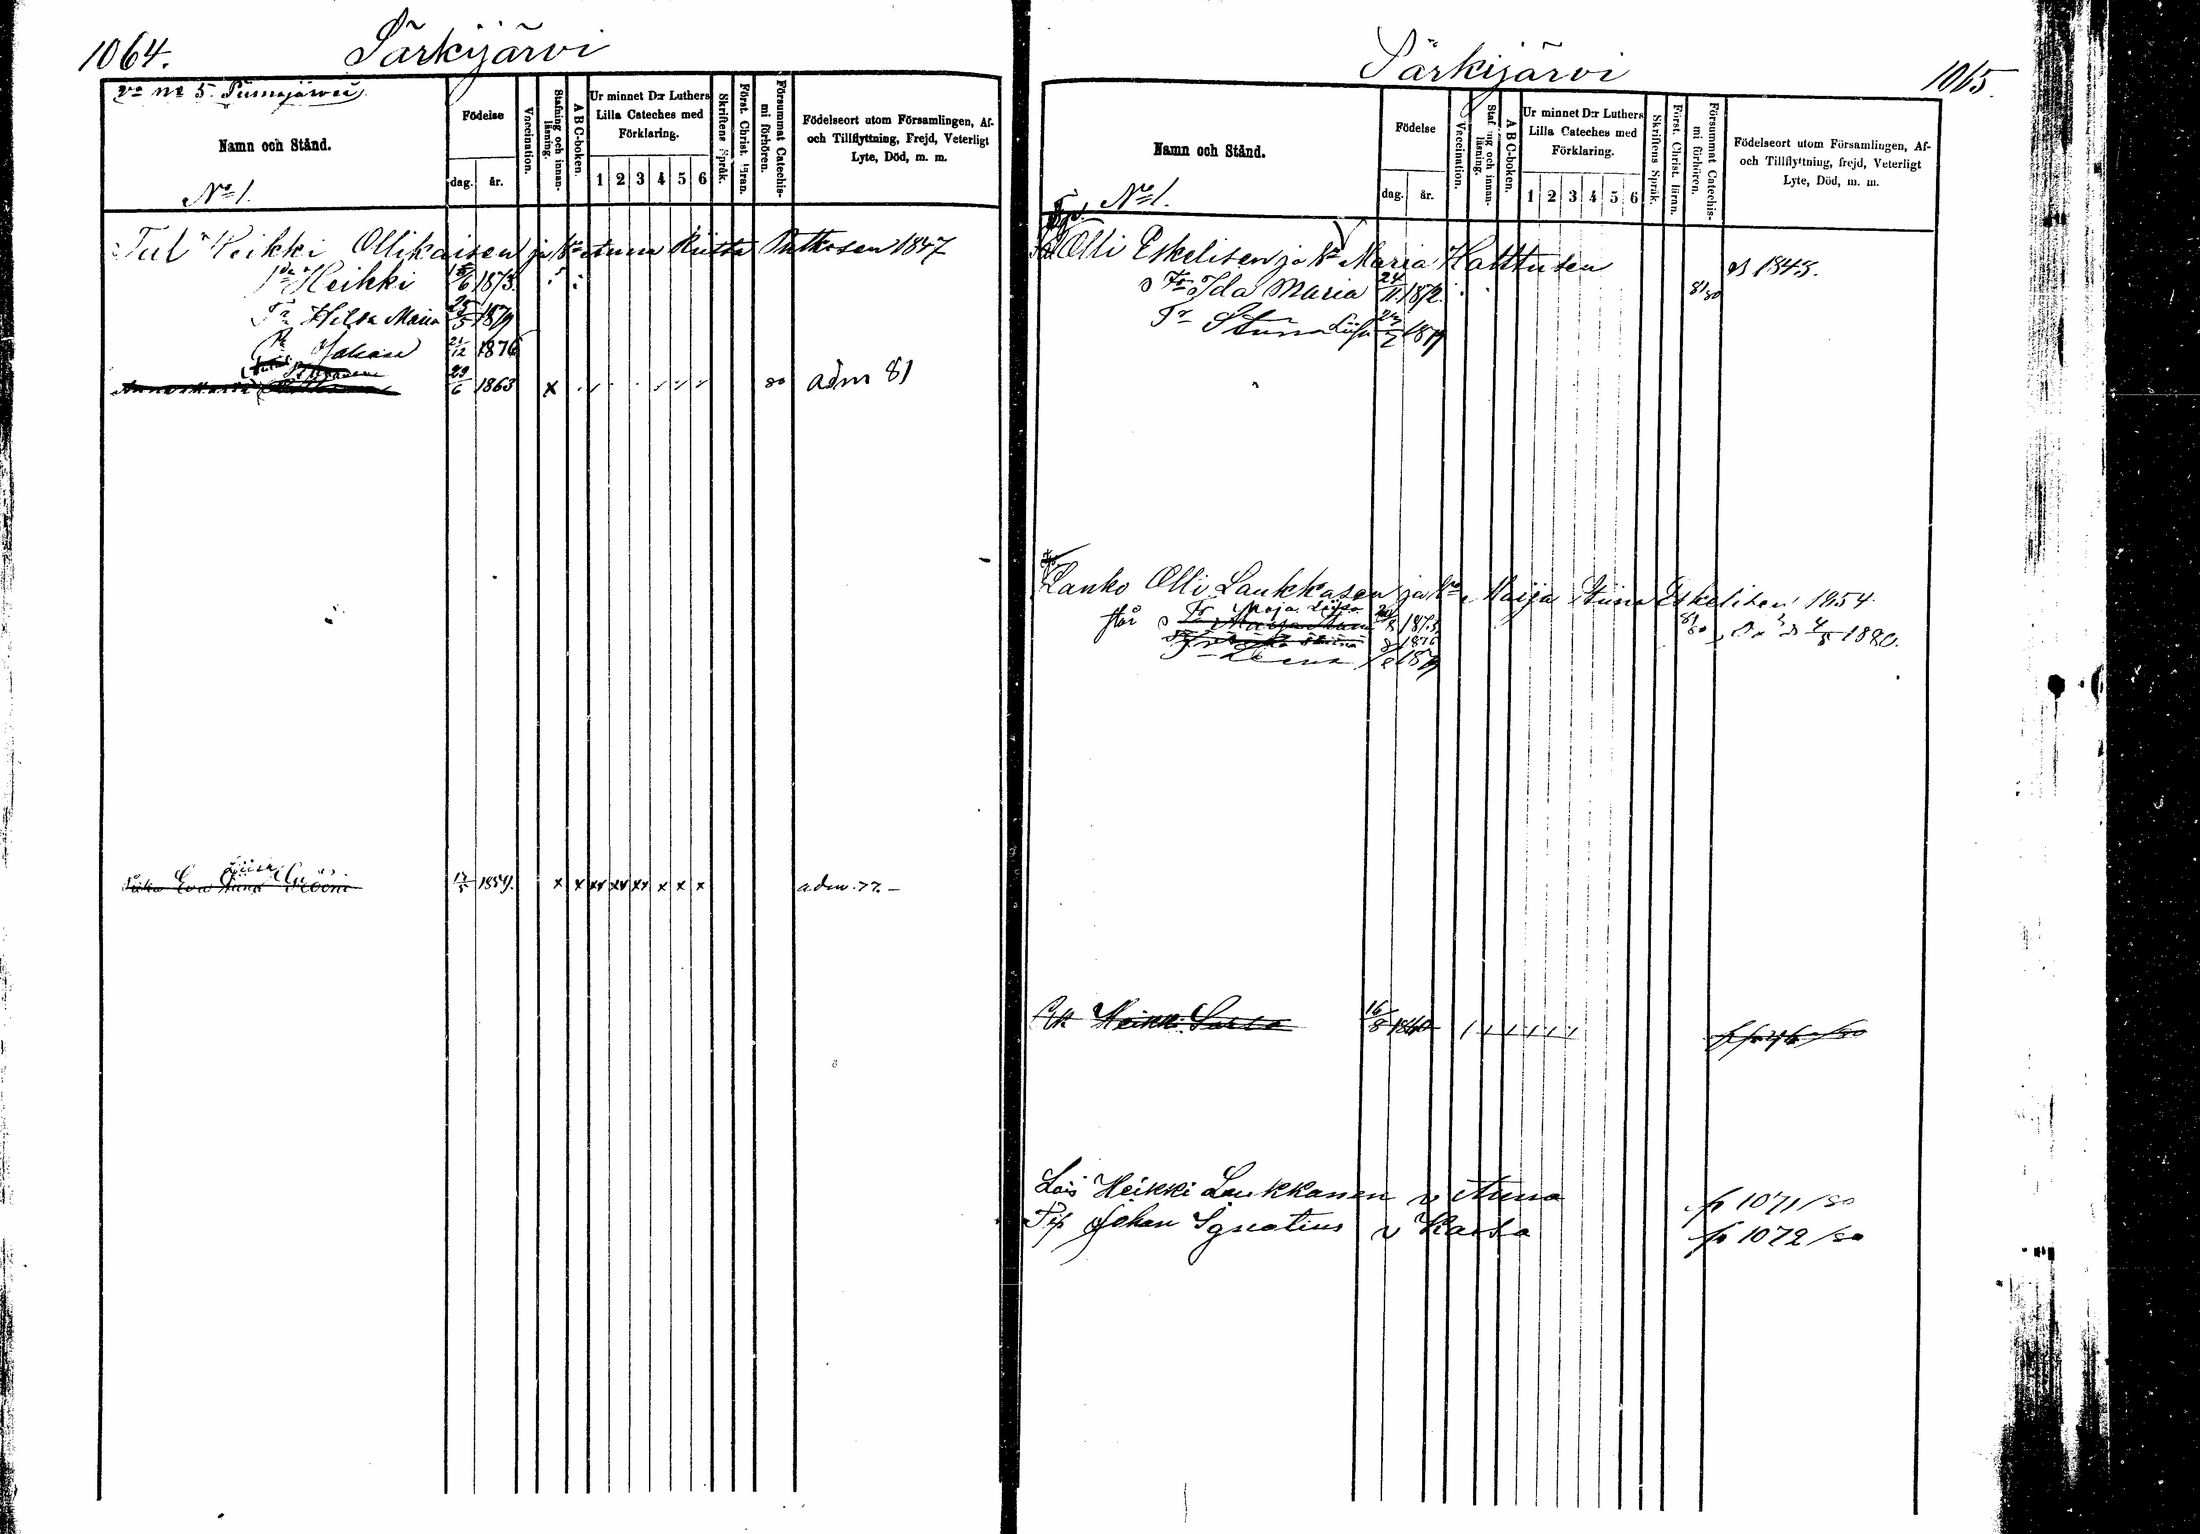 1064. Särkijärvi
No 5.
Namn och Stånd.
No 1.
Födelse
dag. år.
Vaccination.
Stafning och innan-
läsning.
A B C-boken.
Ur minnet D:r Luthers
Lilla Cateches med
Förklaring.
1 2 3 4 5 6
Skriftens Språk.
Först. Christ. läran.
Försummat Catechis-
mi förhören.
Födelseort utom Församlingen, Af-
och Tillflyttning, Frejd, Veterligt
Lyte, Död, m. m.
Heikki Ollikaisen ja Anna Riitta Putkosen 1847
Heikki 1873
Hilda Maria 1879
Johan 21/12 1876
29/6 1863 x 80 adm 81
Eva 1859. x x xx xx xx x x x adm. 77. –
Särkijärvi 1065.
Namn och Stånd.
No 1.
Födelse
dag. år.
Vaccination.
Stafning och innan-
läsning.
A B C-boken.
Ur minnet D:r Luthers
Lilla Cateches med
Förklaring.
1 2 3 4 5 6
Skriftens Språk.
Först. Christ. läran.
Försummat Catechis-
mi förhören.
Födelseort utom Församlingen, Af-
och Tillflyttning, frejd, Veterligt
Lyte, Död, m. m.
Olli Eskelisen ja Maria Halttusen 1848.
Ida Maria 24/11 1872. 81 80
Stiina Liisa 1879
Lanko Olli Laukkasen ja Maija Stiina Eskelisen 1854.
Maja Liisa 1873 1880.
1876
Leena 1879
Heikki 16/8
Lois Heikki Laukkanen v Anna fr 1071/80
Johan Ignatius v Kaisa fr 1072/80